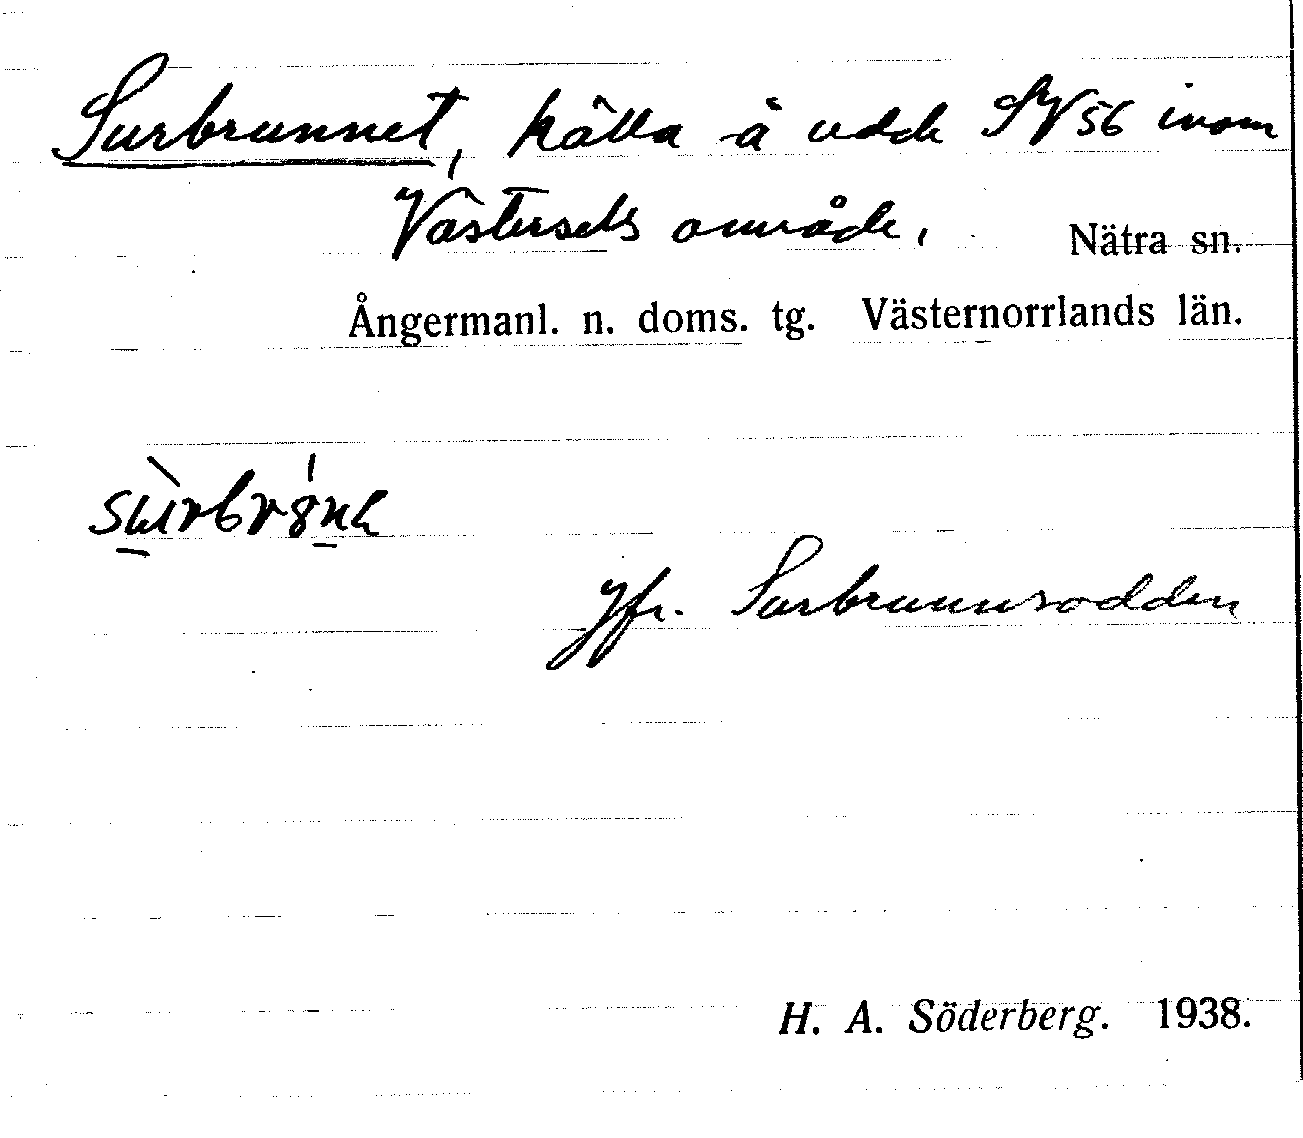 Surbrunnet, källa å udde SV 56 inom
Västersels område.
Nätra sn.
Ångermanl. n. doms. tg. Västernorrlands län.
Jfr. Surbrunnsodden
H. A. Söderberg. 1938.